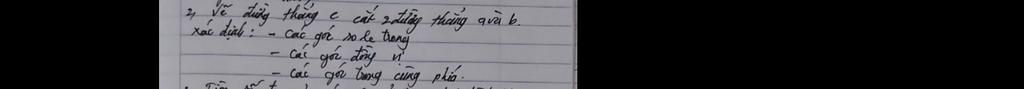 2, Vẽ đường thẳng c cắt 2 đường thẳng a và b.
Xác định: - Các góc so le trong
- Các góc đồng vị
- Các góc trong cùng phía.